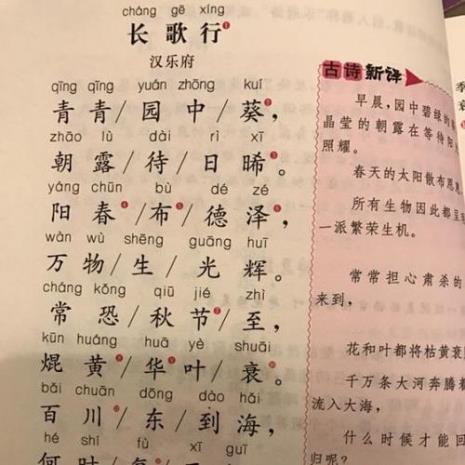 cháng gē xíng
长歌行
汉乐府
qīng qīng yuán zhōng kuí
青青/园中/葵，
zhāo lù dài rì xī
朝露/待/日晞。
yáng chūn bù dé zé
阳春/布/德泽，
wàn wù shēng guāng huī
万物/生/光辉。
cháng kǒng qiū jié zhì
常恐/秋节/至，
kūn huáng huā yè shuāi
焜黄/华叶/衰。
bǎi chuān dōng dào hǎi
百川/东/到海，
hé shí fù xī guī
古诗新译
早晨，园中碧绿的
晶莹的朝露在等待阳
照耀。
春天的太阳散布恩
所有生物因此都
一派繁荣生机。
常常担心肃杀的
来到，
花和叶都将枯黄衰
千万条大河奔腾
流入大海，
什么时候才能回
归呢？